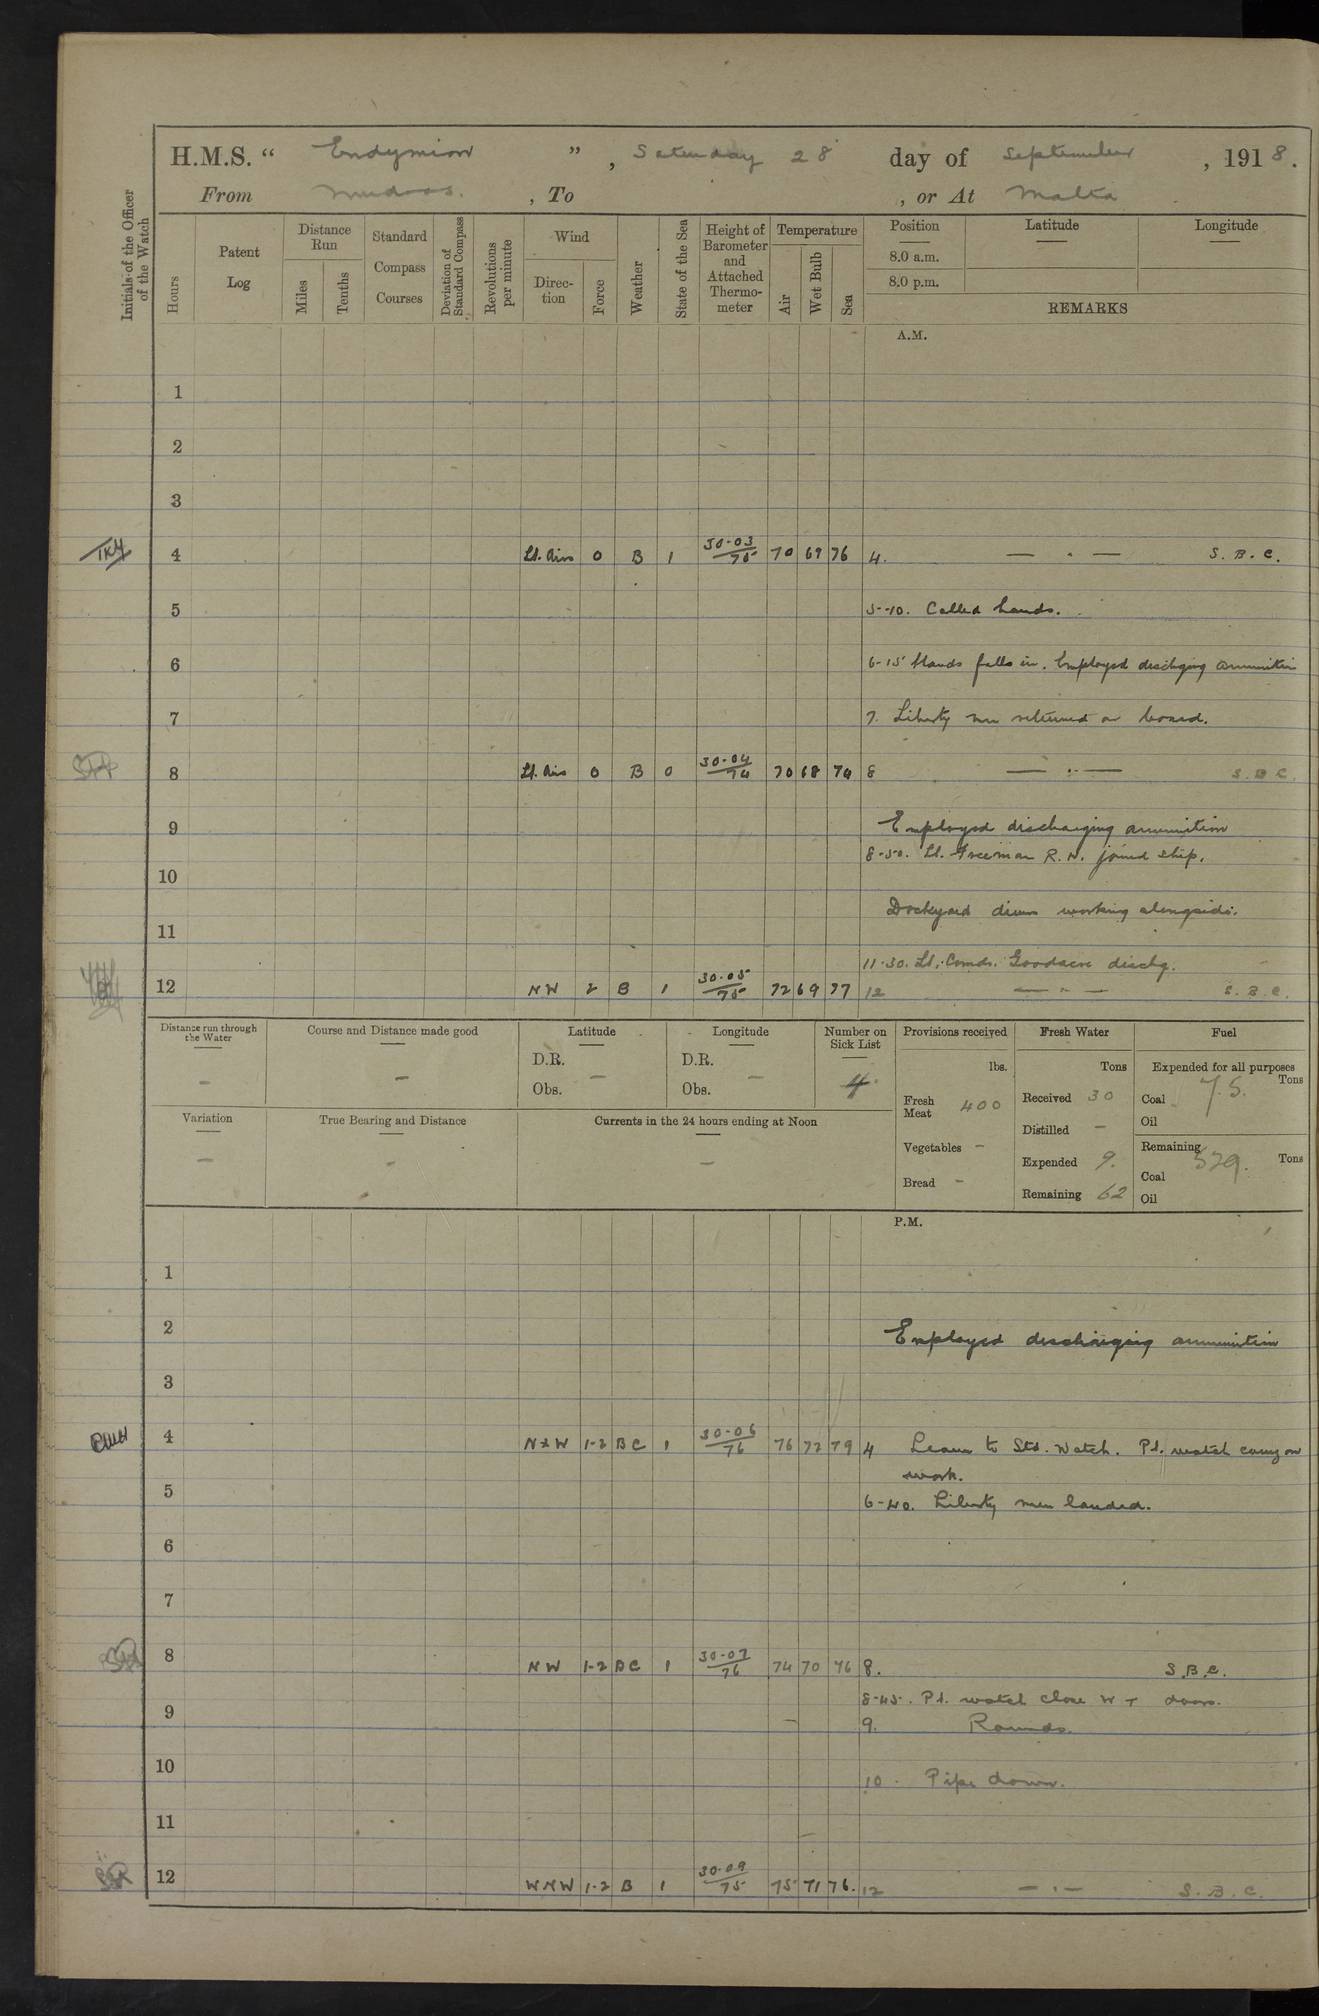 H.M.S. " Endymion ", Saturday 28 day of September, 1918.
From Mudros. , To , or At Malta
Initials of the Officer of the Watch
Hours
Patent Log
Distance Run
Miles
Tenths
Standard Compass Courses
Deviation of Standard Compass
Revolutions per minute
Wind
Direction
Force
Weather
State of the Sea
Height of Barometer and Attached Thermometer
Temperature
Air
Wet Bulb
Sea
Position Latitude Longitude
8.0 a.m.
8.0 p.m.
REMARKS
A.M.
1
2
3
4 Lt. Airs 0 B 1 30-03/75 70 69 76 4. — . — S. B. C.
5 5-10. Called hands.
6 6-15 Hands falls in. Employed dischging ammunition
7 7. Liberty men returned on board.
8 Lt. Airs 0 B 0 30-04/74 70 68 74 8 — . — S. B. C.
9 Employed discharging ammunition
8-50. Lt. Freeman R. N. joined ship.
10
Dockyard divers working alongside.
11
11-30. Lt. Comdr. Goodacre dischg.
12 NW 2 B 1 30-05/75 72 69 77 12 — " — S. B. C.
Distance run through the Water —
Course and Distance made good —
Latitude
D.R.
Obs. —
Longitude
D.R.
Obs. —
Number on Sick List
4
Provisions received
lbs.
Fresh Meat 400
Vegetables -
Bread -
Fresh Water
Tons
Received 30
Distilled —
Expended 9.
Remaining 62
Fuel
Expended for all purposes
Tons
Coal 7.5.
Oil
Remaining
Tons
Coal 529.
Oil
Variation —
True Bearing and Distance —
Currents in the 24 hours ending at Noon —
P.M.
1
2 Employed discharging ammunition
3
4 NxW 1-2 BC 1 30-06/76 76 72 79 4 Leave to Std. Watch. Pt. watch carry on
work.
5 6-40. Liberty men landed.
6
7
8 NW 1-2 BC 1 30-07/76 74 70 76 8. S.B.C.
8-45. Pt. watch close W T doors.
9 9. Rounds.
10 10. Pipe down.
11
12 WNW 1-2 B 1 30-09/75 75 71 76. 12 — . — S. B. C.